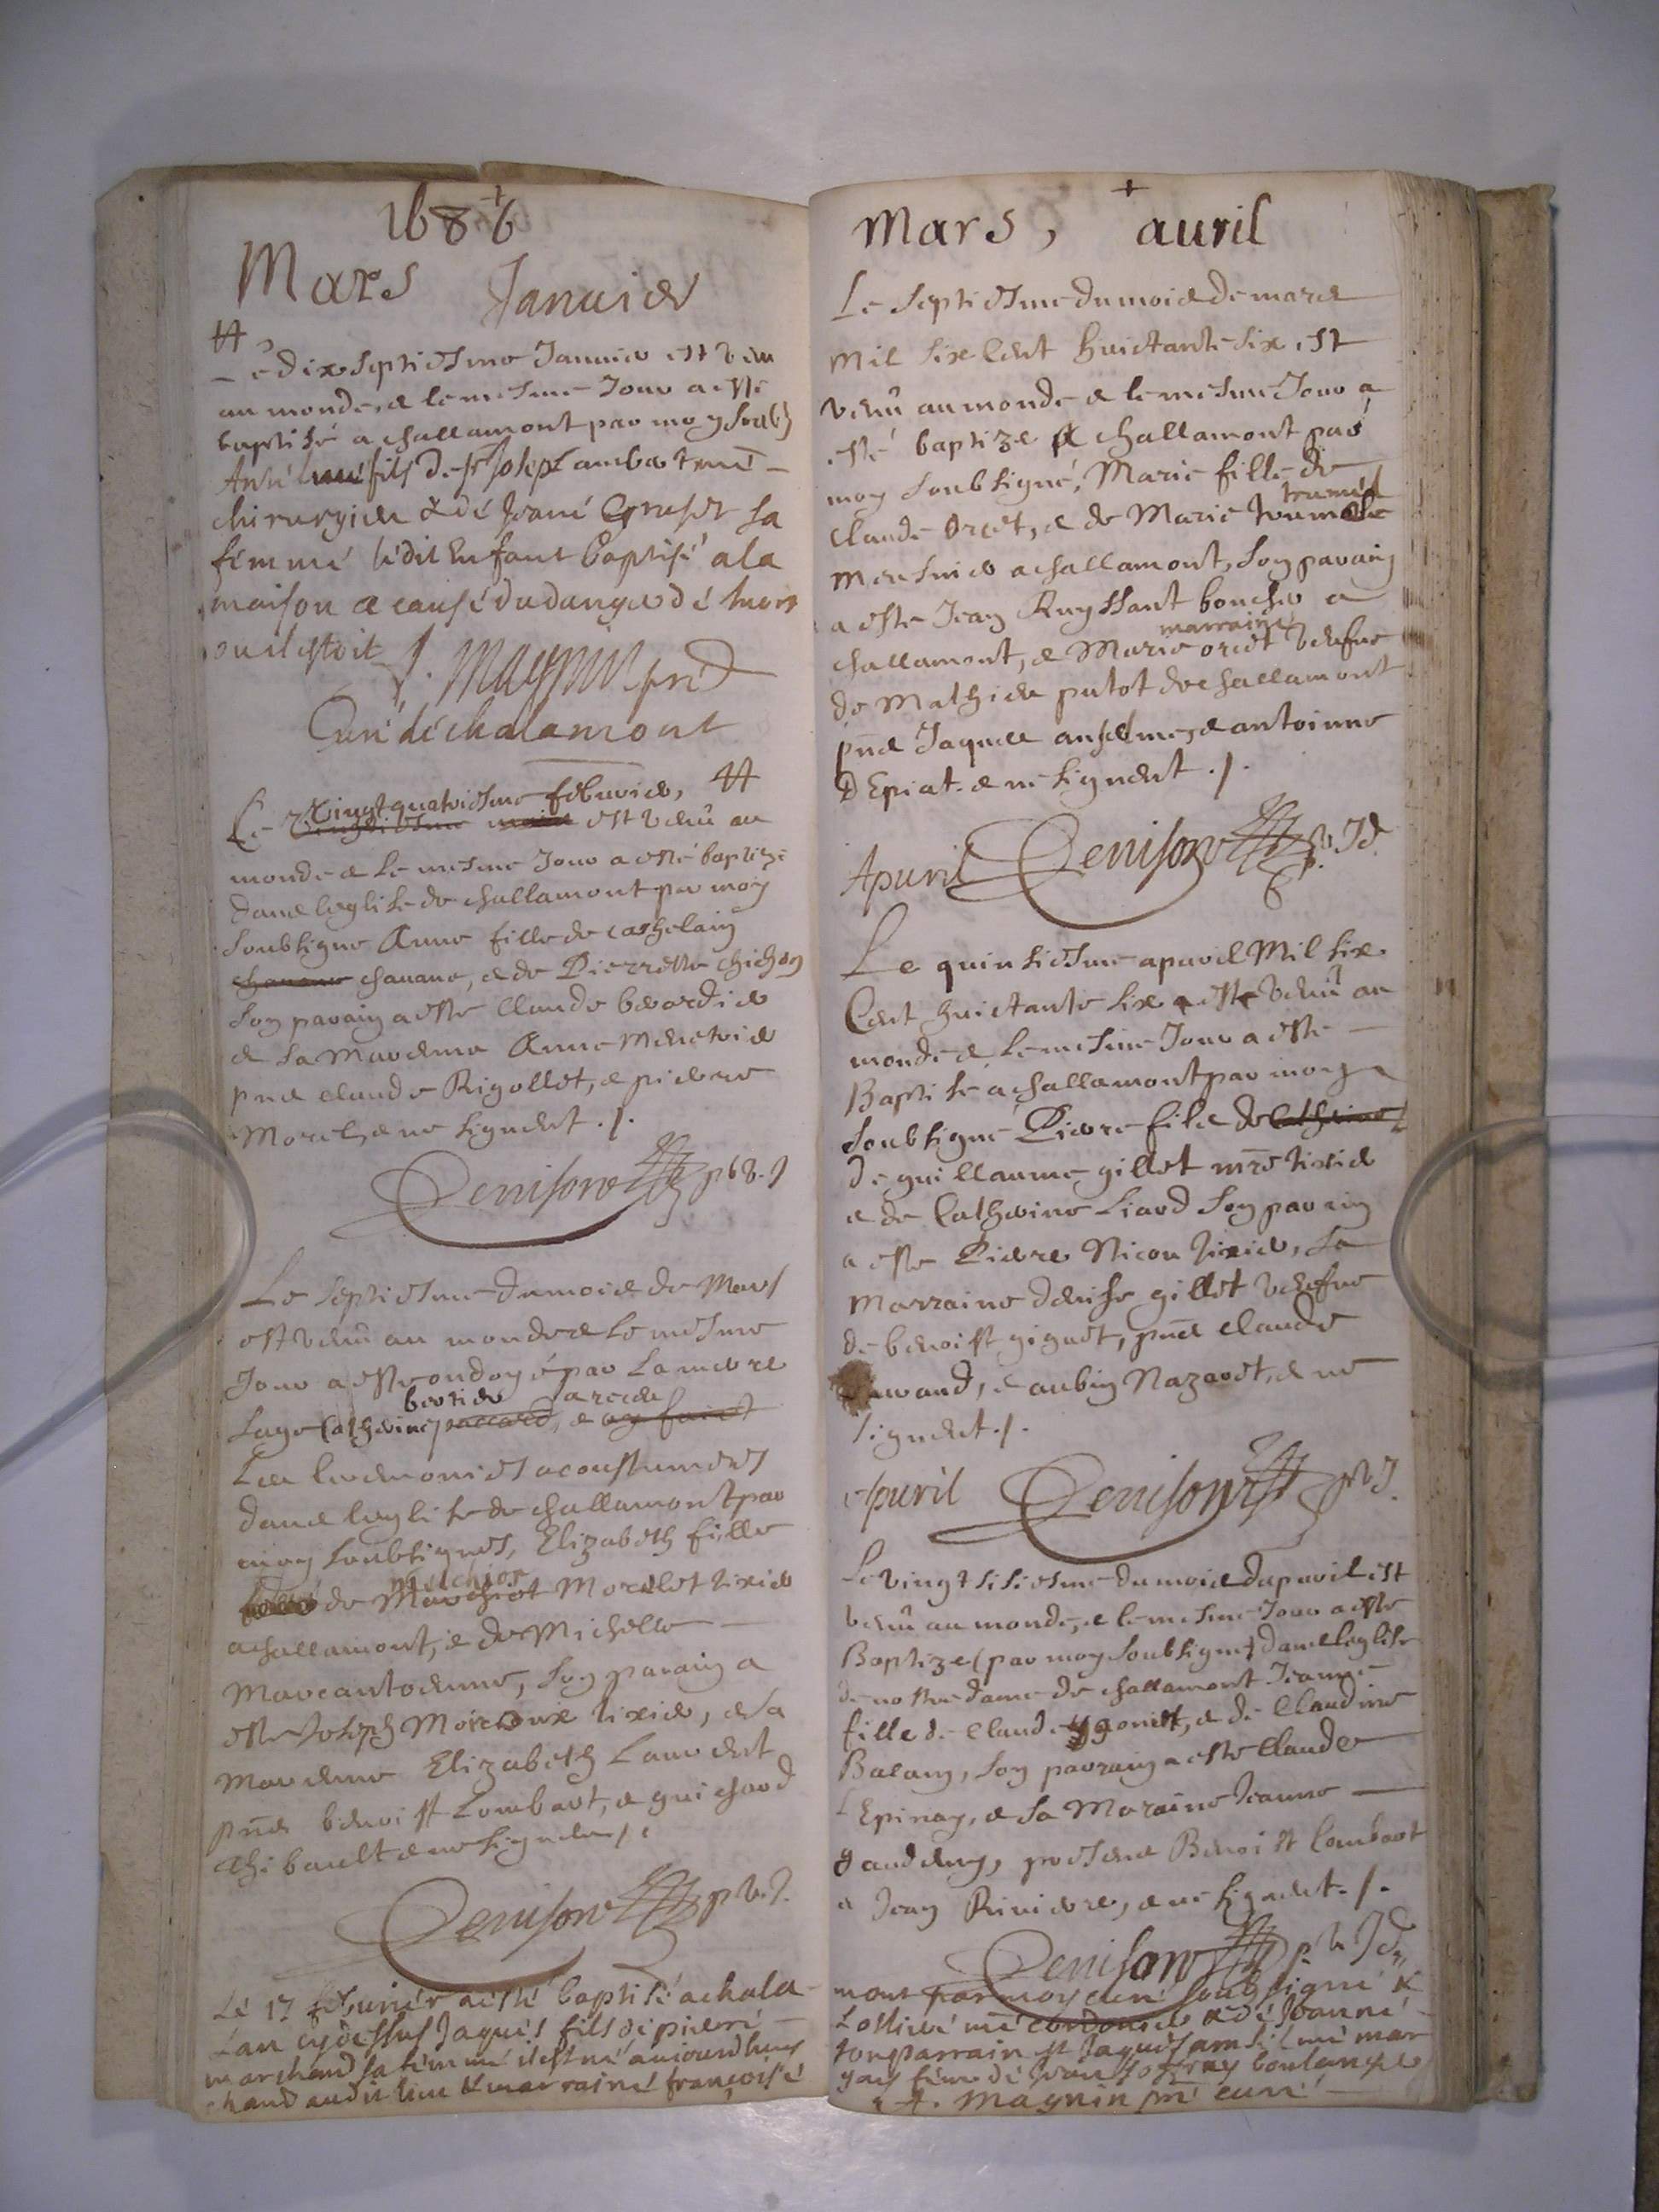 1686
Mars Januier
Le dix septiesme Januier est venu
au monde, & le mesme Jour a esté
baptisé a challamont par moy soubs
fils de sr Joseph Lambert me
chirurgien & dé Jeané Gruset sa
femmé lédit Enfant Baptisé a la
maison a causé du danger dé mort
ou il estoit. Magnin pre
Curé dé chalamont
Le Vingt quatriesme februier, est venu au
monde & le mesme Jour a esté baptizé
dans leglise de challamont par moy
soubsigne Anne fille de
chanane chanane, & de Pierrette chichon
son parain a este Claude
& sa Marenne Anne
pns claude Rigollet, & pierre
Morel, & ne signent ./.
Denisow pbr.
Le septiesme du mois de Mars
est venu au monde & le mesme
Jour a este ondoyé par la mere
sage Catherine bertier paccard, & ay faict
Les Ceremonies acoustumees
dans leglise de challamont par
moy soubsignes, Elizabeth fille
de Melchior Morelet tixier
a challamont, & de Michelle
Marcantoenne, son parain a
este Joseph tixier, & la
Marenne Elizabeth Laurent
pns benoist Lombart, & guichard
Thibault & ne signent ./.
Denisow pbr.
Lé 17 feburiér a esté baptisé a chala-
L'an cydessus Jaqués fils dé pierré
marchand sa femmé il est né aujourdhuy
chand audit lieu & marrainé françoisé
Mars, auril
Le Septiesme du mois de mars
mil six Cent huictante six, est
venu au monde & le mesme Jour a
esté baptize a challamont par
moy soubsigné, Marie fille de
claude Oret, & de Marie trumel
a challamont, son parain
a este Jean Ruyssant boucher a
challamont, & Marie oret marraine vefue
de Mathieu putot de challamont
pns Jaques anselme, & antoinne
D Epiat. & ne signent ./.
Apuril Denisow
Le quinsiesme apuril Mil six
Cent huictante six este venu au
monde & le mesme Jour a esté
Baptisé a challamont par moy
soubsigné Pierre fils de Catherine
de guillaume gillet mre tixier
& de Catherine Liard son parain
a este Pierre Nicou tixier, sa
Marraine denise gillet vefue
de benoist giguet, pns claude
, & aubin Nazaret, & ne
signent ./.
Apuril Denisow
Le vingt sisiesme du mois dapuril est
venu au monde, & le mesme Jour a este
Baptize (par moy soubsigné) dans leglise
de nostre dame de challamont Jeanne
fille de Claude & de Claudine
Balany, son parrain a este Claude
L Epinay, & sa Maraine Jeanne
presens Benoist Lombart
& Jean Riuiere, & ne signent. /.
Denisow
mont par moy curé soubsigné &
Lolliué mé cordonier & dé Jeanné
son parrain st Jaques ansélmé mar
boulangér
Magnin pré curé